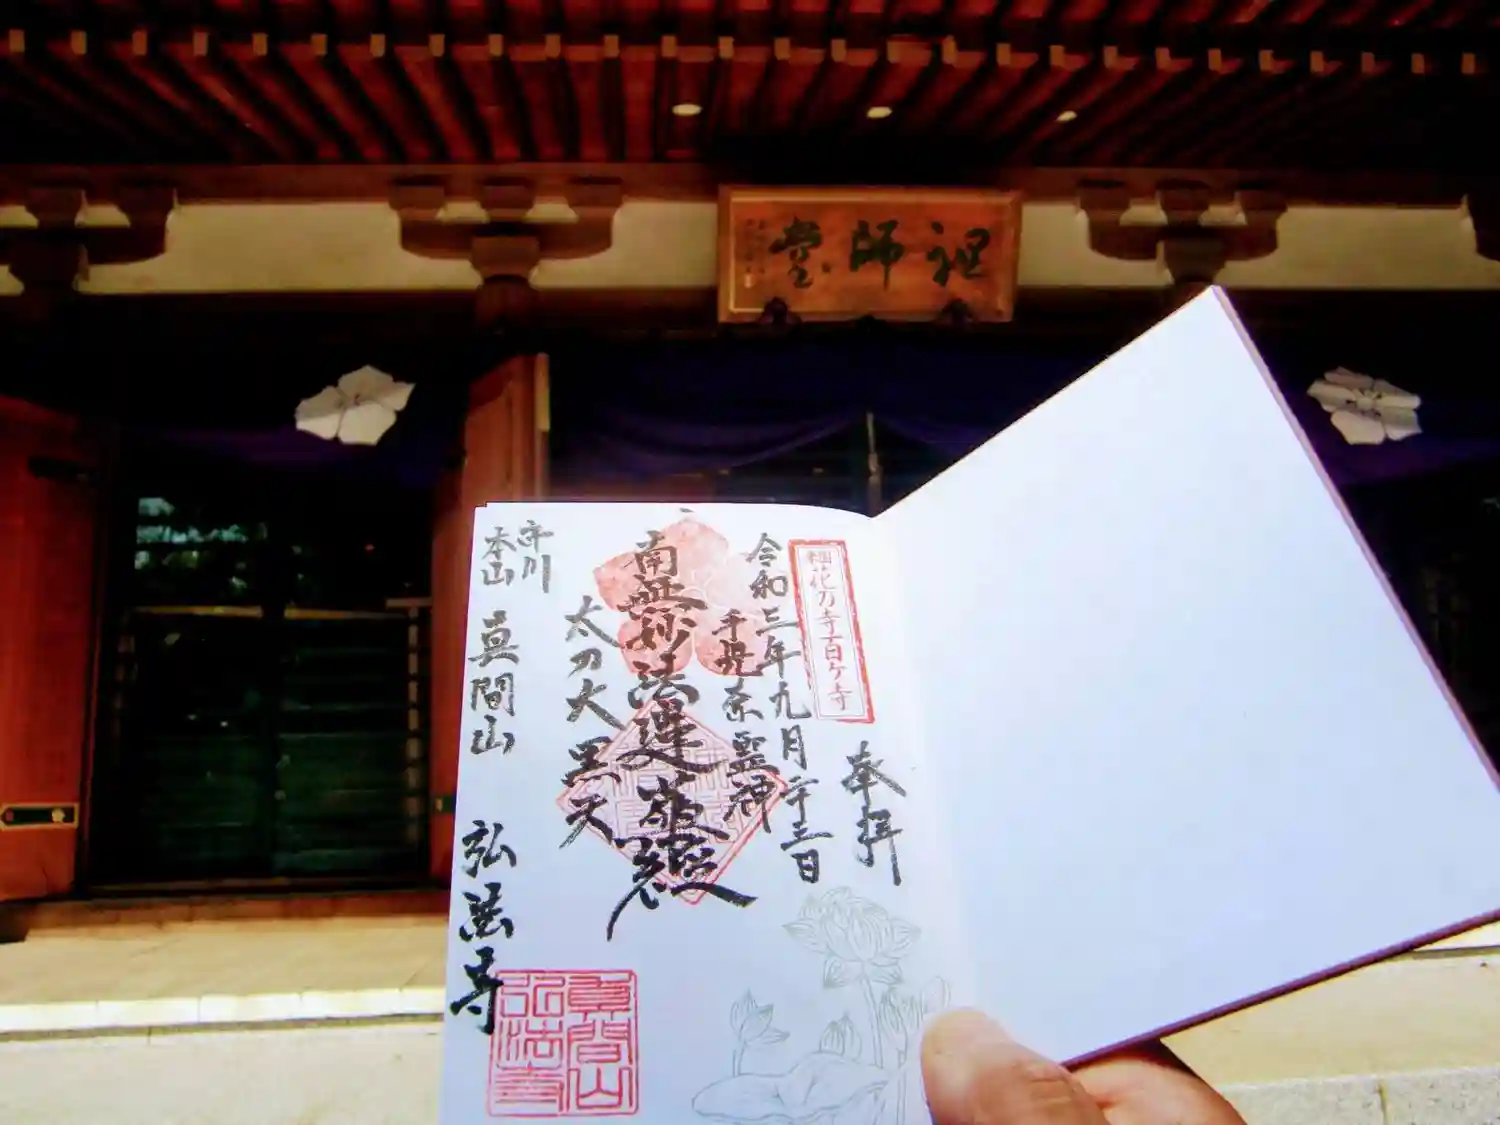 祖師堂
樞花乃寺百ケ寺
奉拝
令和三年九月二十三日
千児奈霊神
南無妙法蓮華経
太刀大黒天
市川
本山 真間山 弘法寺
真間山
弘法寺